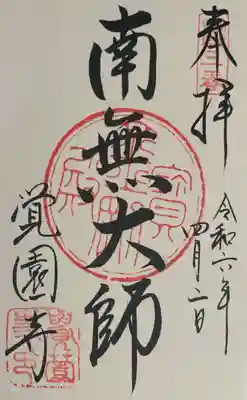 奉拝
令和六年
四月二日
南無大師
覚園寺